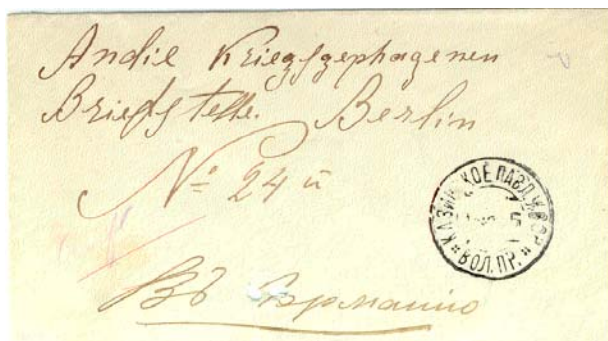 Andie Kriegsgephagenen
Briefstelle. Berlin
№ 24 й
Въ Германию
ВОЛ. ПР.